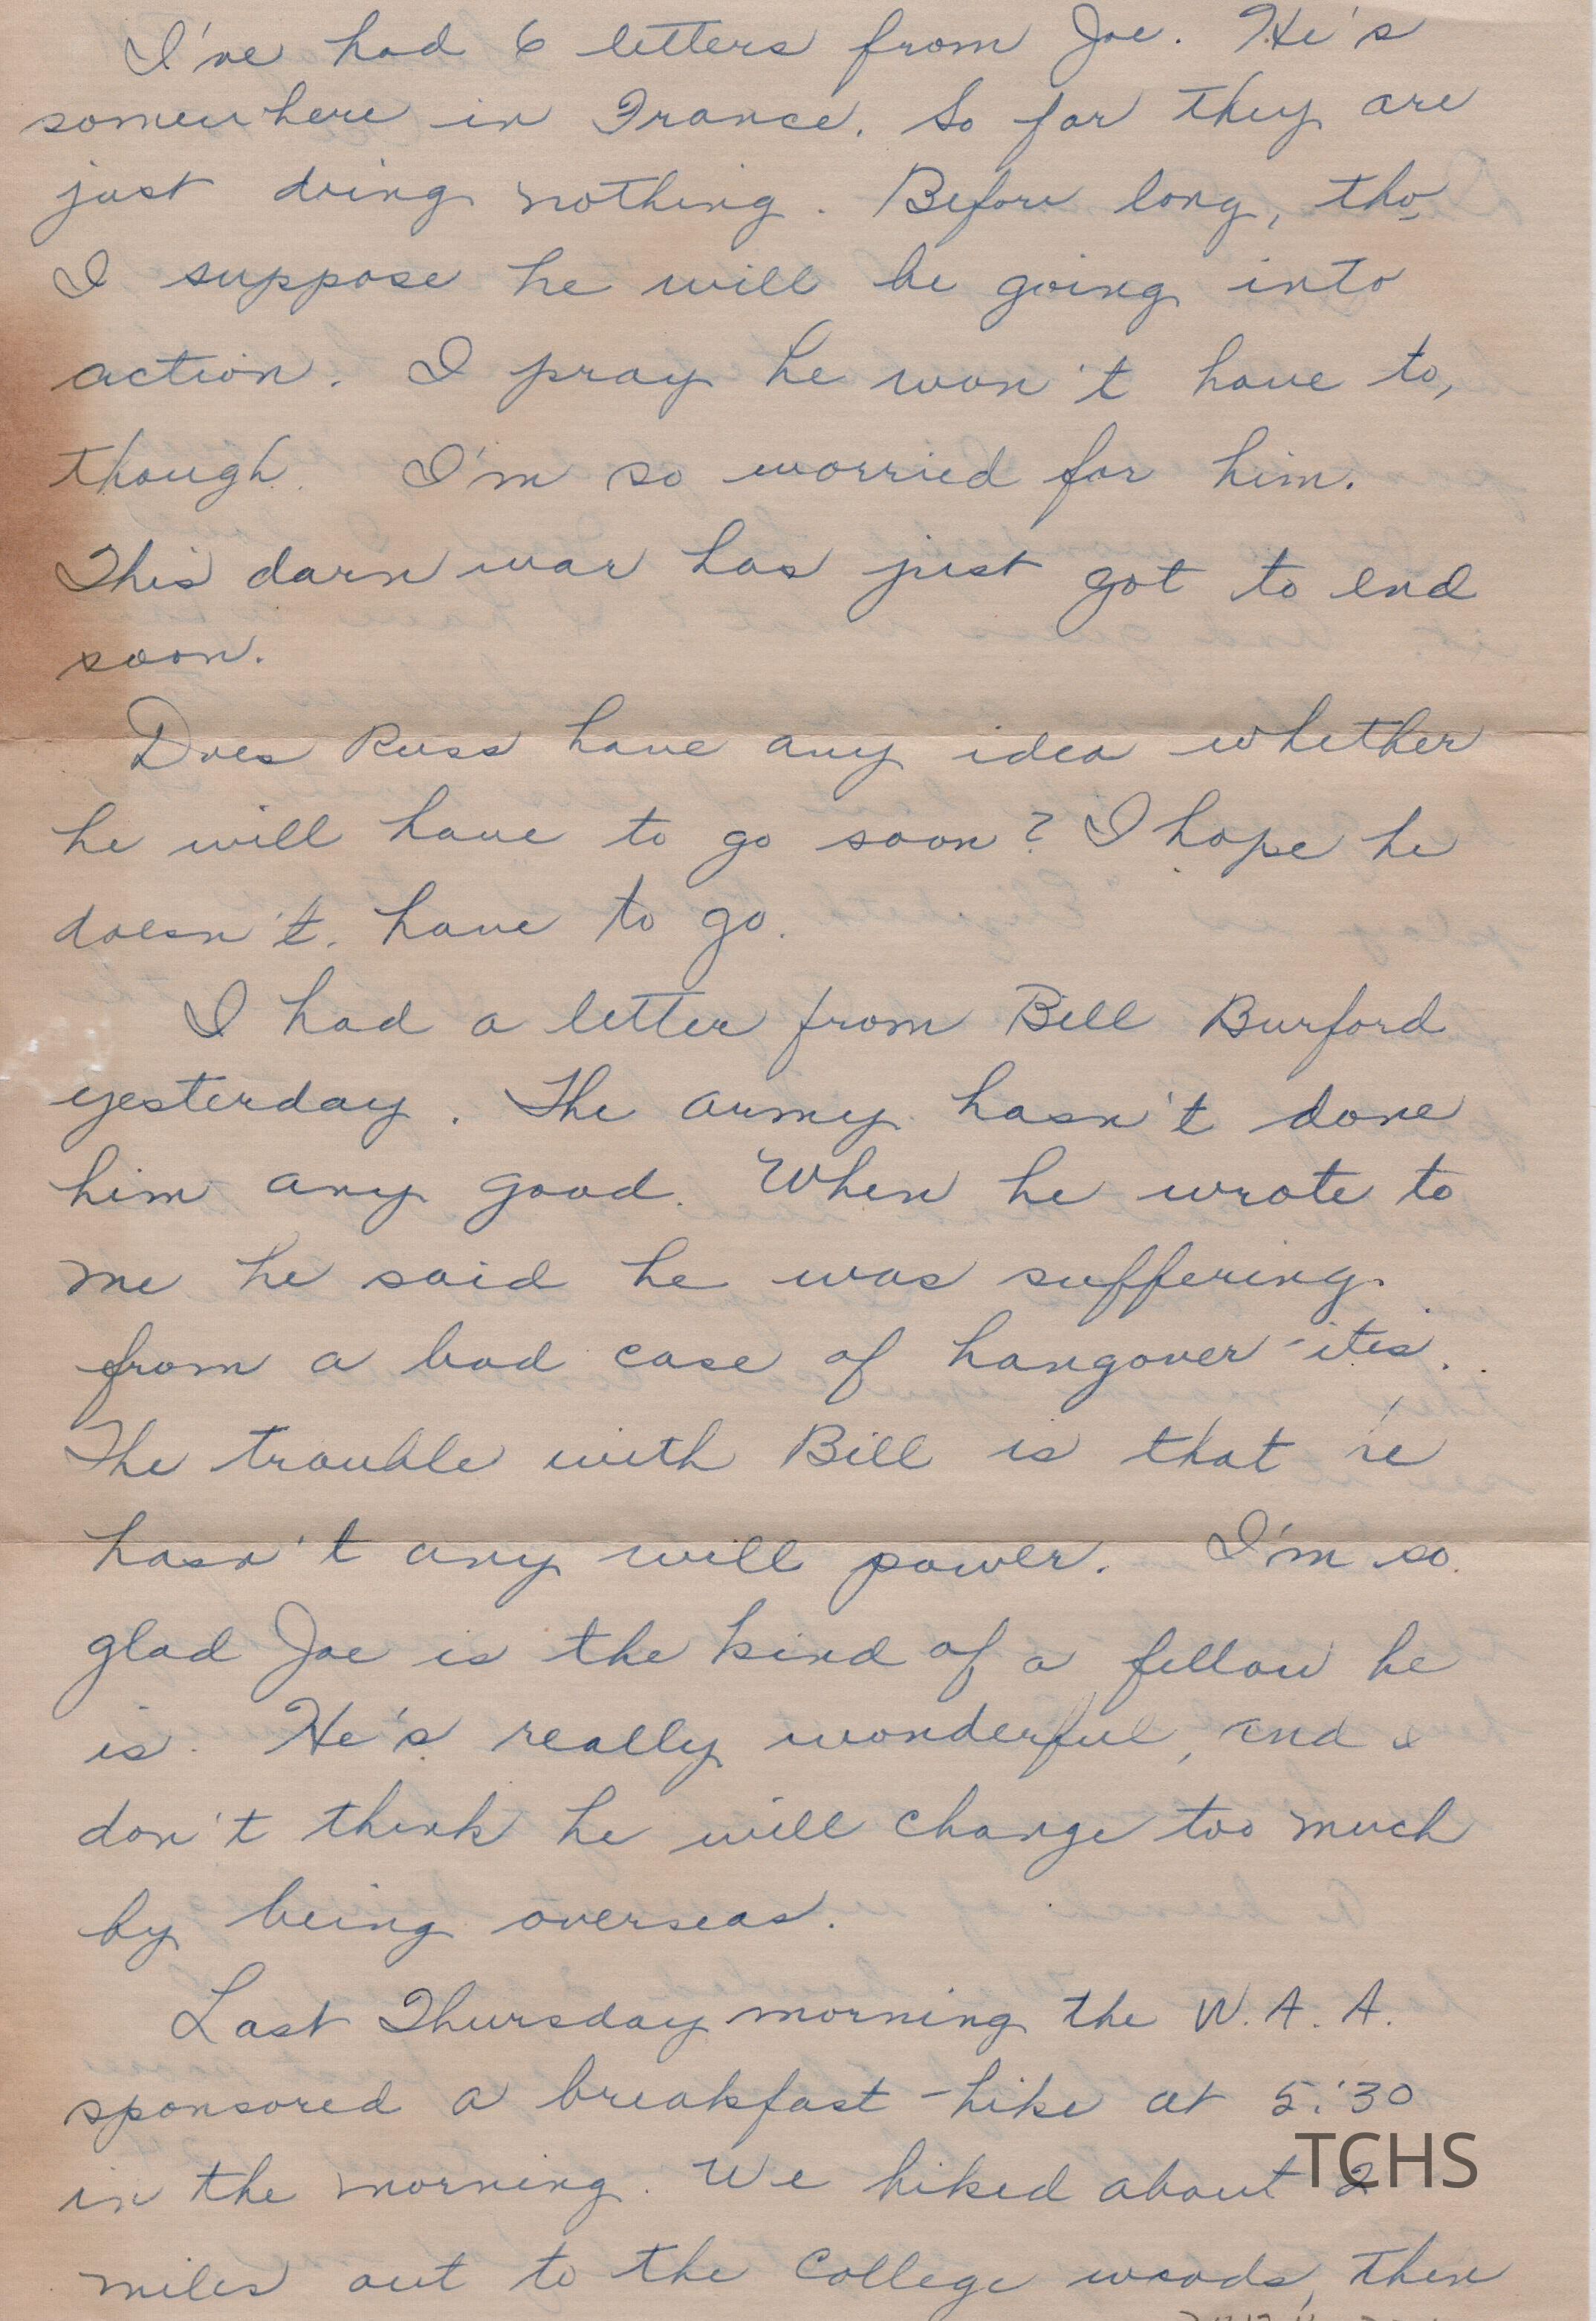 I've had 6 letters from Joe. He's
somewhere in France. So far they are
just doing nothing. Before long, tho
I suppose he will be going into
action. I pray he won't have to,
though. I'm so worried for him.
This darn war has just got to end
soon.
Does Russ have any idea whether
he will have to go soon? I hope he
doesn't have to go.
I had a letter from Bill Burford
yesterday. The army hasn't done
him any good. When he wrote to
me he said he was suffering
from a bad case of hangover-itis.
The trouble with Bill is that he
hasn't any will power. I'm so
glad Joe is the kind of a fellow he
is. He's really wonderful, and I
don't think he will change too much
by being overseas.
Last Thursday morning the W.A.A.
sponsored a breakfast-hike at 5:30
in the morning. We hiked about 2
TCHS
miles out to the College woods, then